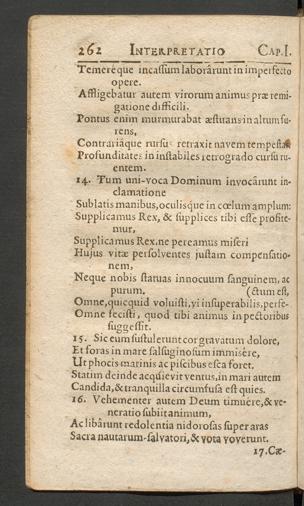 262 INTERPRETATIO CAP.I.
Temeréque incassum laborârunt in imperfecto
opere.
Affligebatur autem virorum animus præ remi-
gatione difficili.
Pontus enim murmurabat æstuans in altum fu-
rens,
Contrariâque rursus retraxit navem tempestas
Profunditates in instabiles retrogrado cursu ru-
entem.
14. Tum uni-voca Dominum invocârunt in-
clamatione
Sublatis manibus, oculisque in cœlum amplum:
Supplicamus Rex, & supplices tibi esse profite-
mur,
Supplicamus Rex, ne pereamus miseri
Hujus vitæ persolventes justam compensatio-
nem,
Neque nobis statuas innocuum sanguinem, ac
purum. (ctum est,
Omne, quicquid voluisti, vi insuperabilis, perfe-
Omne fecisti, quod tibi animus in pectoribus
suggessit.
15. Sic eum sustulerunt cor gravatum dolore,
Et foras in mare salsuginosum immisêre,
Ut phocis marinis ac piscibus esca foret.
Statim deinde acquievit ventus, in mari autem
Candida, & tranquilla circumfusa est quies.
16. Vehementer autem Deum timuêre, & ve-
neratio subiit animum,
Ac libârunt redolentia nidorosas super aras
Sacra nautarum-salvatori, & vota voverunt.
17. Cæ-